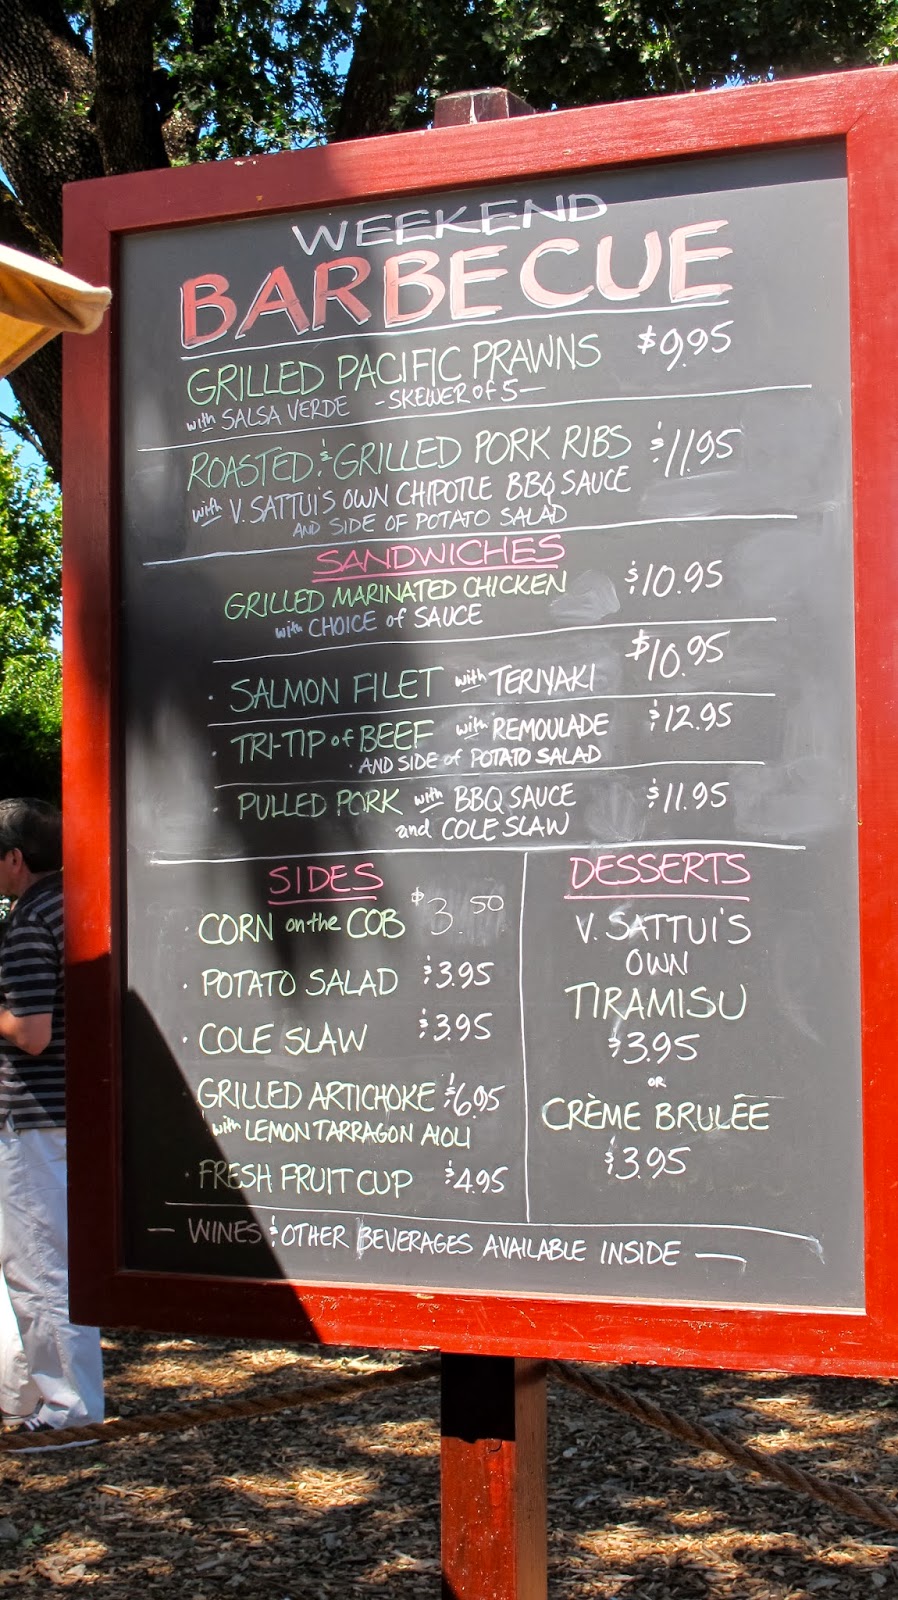 WEEKEND
BARBECUE
GRILLED PACIFIC PRAWNS $9.95
with SALSA VERDE - SKEWER of 5 -
ROASTED & GRILLED PORK RIBS $11.95
with V. SATTUI'S OWN CHIPOTLE BBQ SAUCE
AND SIDE OF POTATO SALAD
SANDWICHES
GRILLED MARINATED CHICKEN $10.95
with CHOICE of SAUCE
· SALMON FILET with TERIYAKI $10.95
· TRI-TIP of BEEF with REMOULADE $12.95
· AND SIDE of POTATO SALAD
· PULLED PORK with BBQ SAUCE $11.95
and COLE SLAW
SIDES
· CORN on the COB $3.50
· POTATO SALAD $3.95
· COLE SLAW $3.95
GRILLED ARTICHOKE $6.95
with LEMON TARRAGON AIOLI
· FRESH FRUIT CUP $4.95
DESSERTS
V. SATTUI'S
OWN
TIRAMISU
$3.95
OR
CRÈME BRULÉE
$3.95
— WINES & OTHER BEVERAGES AVAILABLE INSIDE —